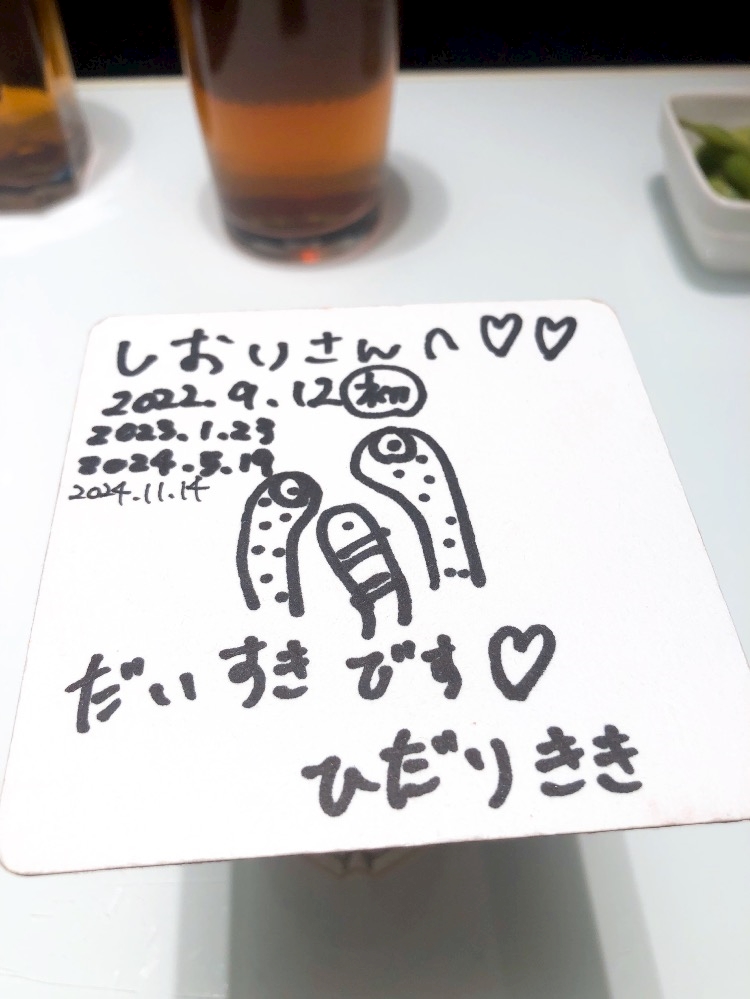 しおりさんへ♡♡
2022.9.12 初
2023.1.23
2024.5.19
2024.11.14
だいすきです♡
ひだりきき